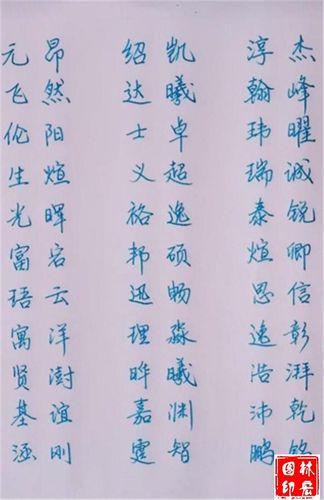 杰峰曜诚锐卿信彰湃乾铭
淳翰玮瑞泰煊思远浩沛鹏
凯曦卓超逸硕畅淼曦渊智
绍达士义裕邦迅理晔嘉霆
昂然阳煊晖云洋澍谊刚
元飞伦生光富寓贤基涵